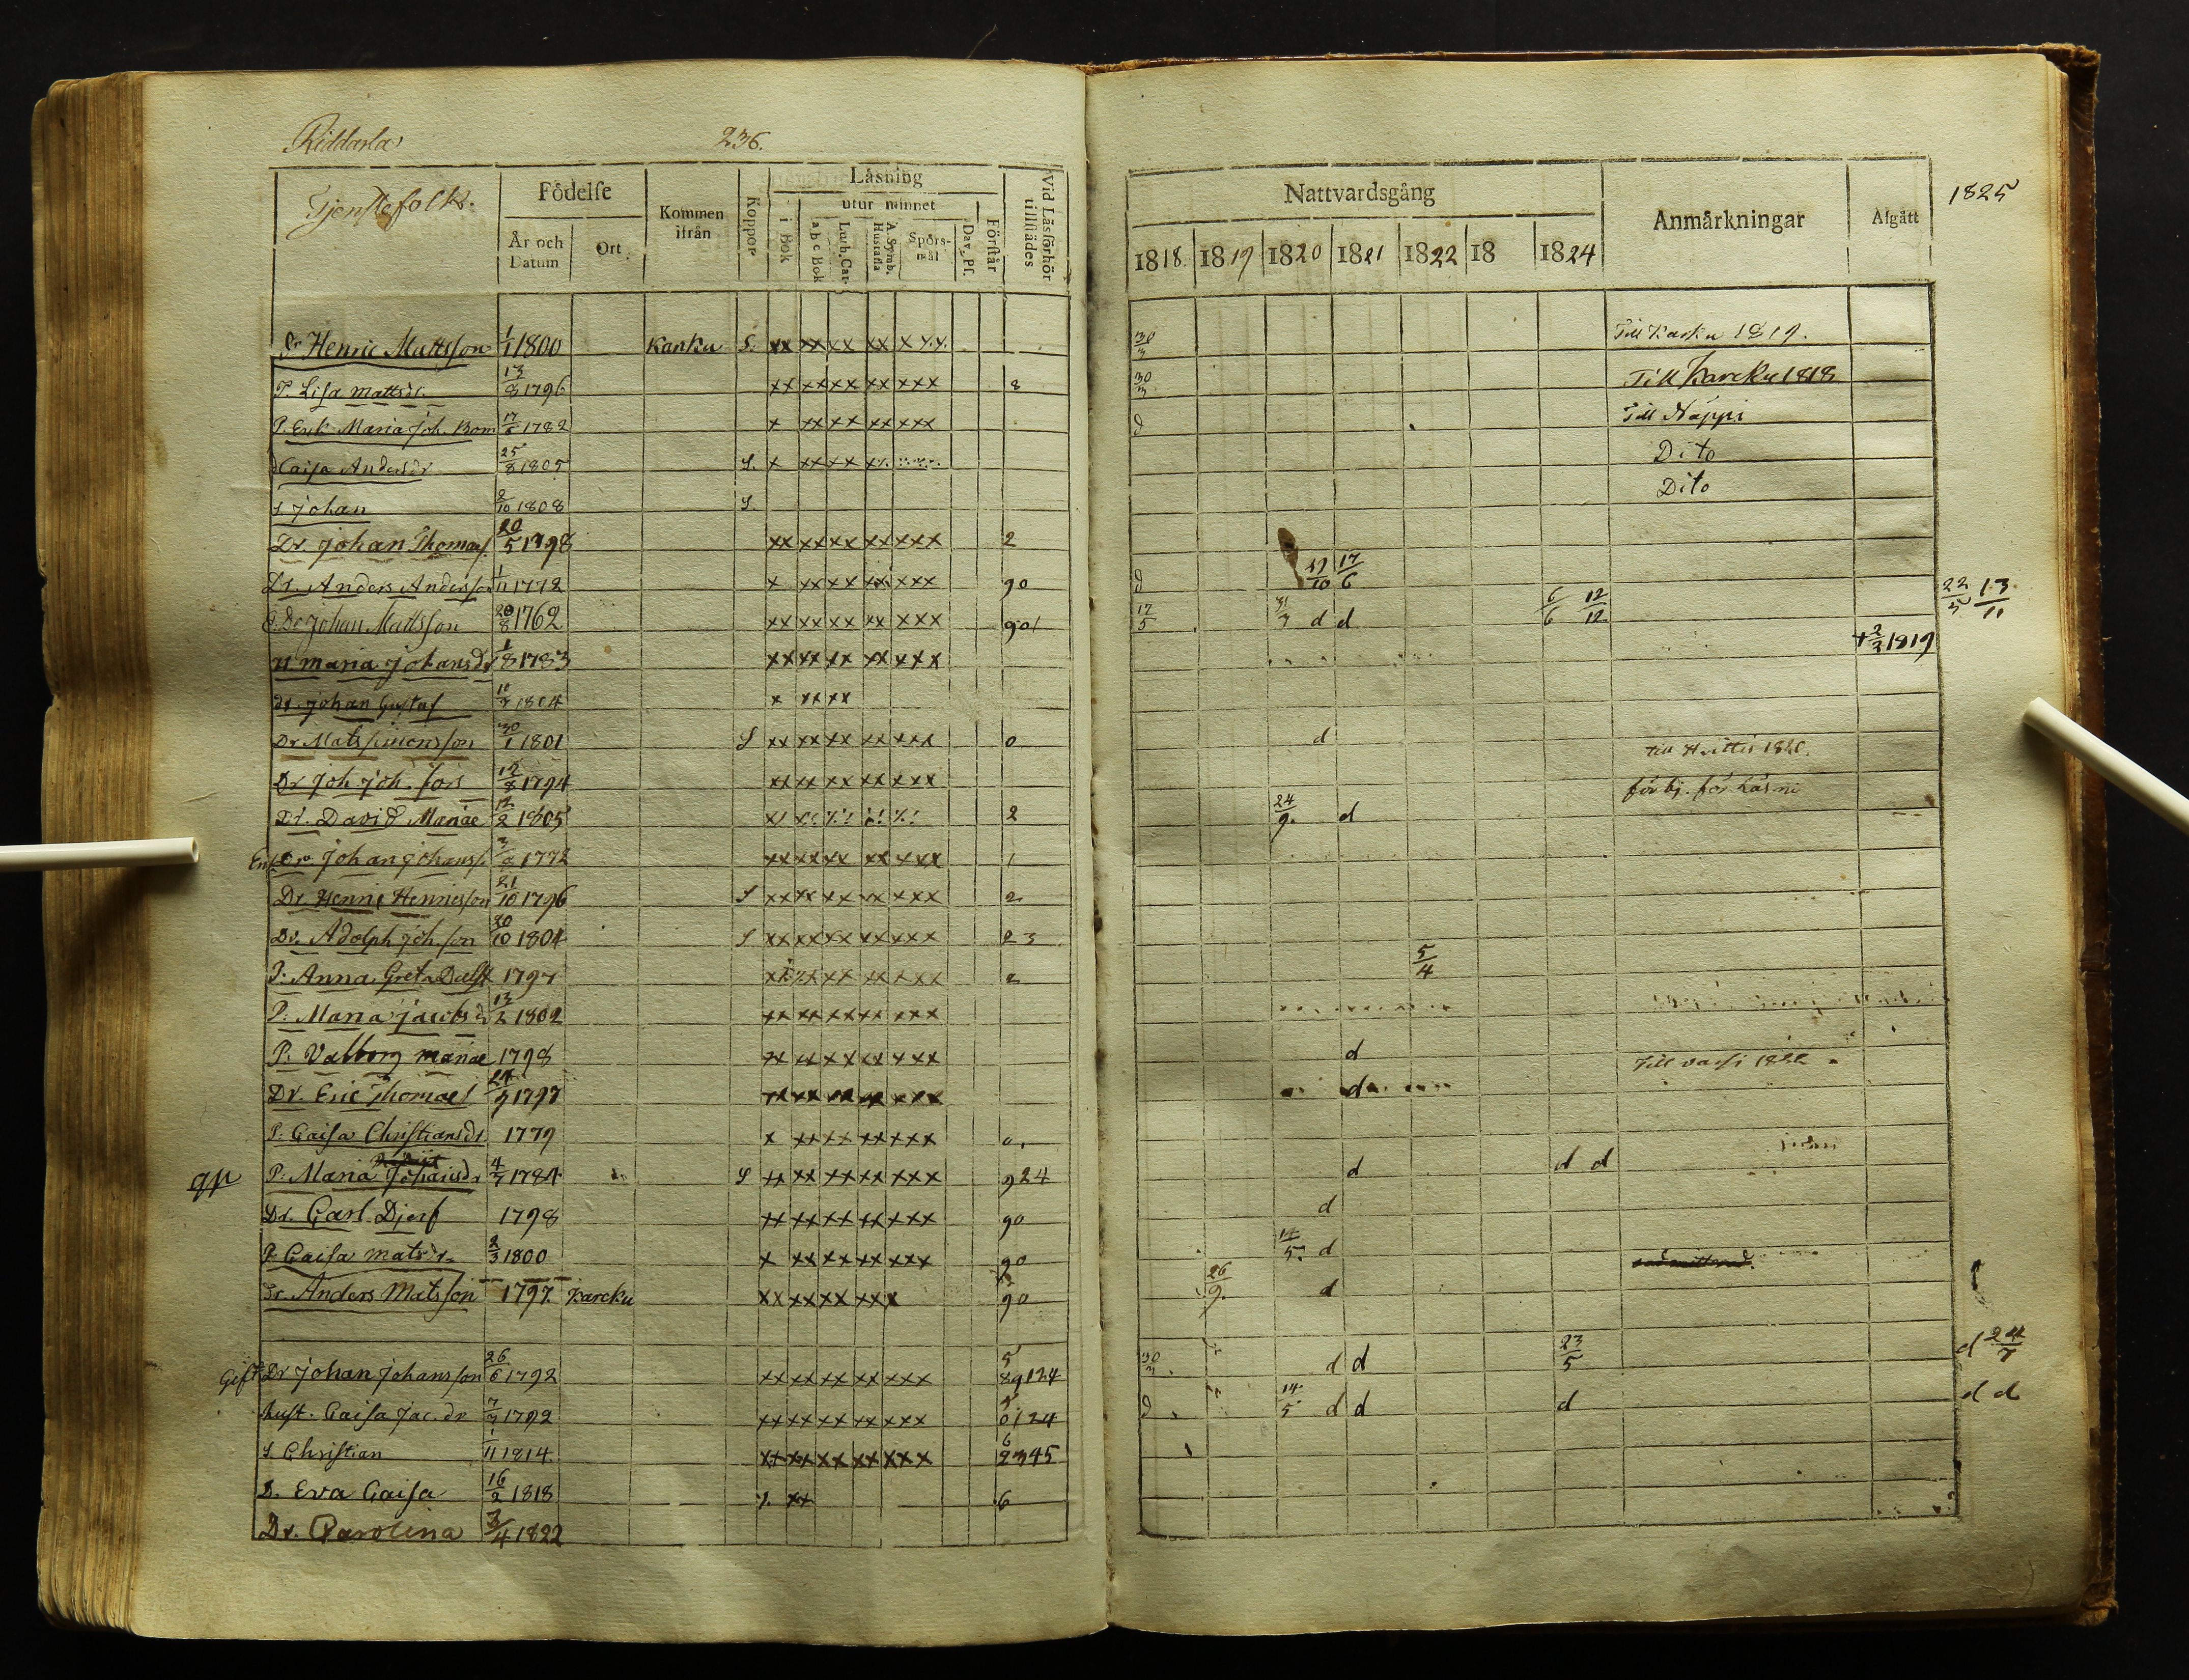 Riddarla 236.
Tjenstefolk. Födelse Kommen ifrån Koppor Läsning Vid Läsförhör tillstädes
År och Datum Ort i Bok utur minnet Förstår
a b c Bok Luth. Cat. A. Symb. Hustafla Spörsmål Dav. Ps.
Nattvardsgång Anmärkningar Afgått 1825
1818. 1819 1820 1821 1822 18 1824
Dr Henric Mattsson 1/1 1800 Karku S. xx xx xx xx x 30/3 Till Karku 1819.
P. Lisa Mattsdr. 13/8 1796 xx xx xx xx xxx 8 30/3 Till Karcku 1818
P. Enk. Maria Joh. Bom 17/6 1782 x xx xx xx xxx d Till Näppi
d Caisa Andersdr 25/8 1805 S. x xx xx Dito
S. Johan 2/10 1808 S. Dito
Dr. Johan Thomas. 20/5 1798 xx xx xx xx xxx 2
Dr. Anders Andersson 1/11 1772 x xx xx xx xxx 90 d 19/10 17/6
Dr Johan Mattsson 20/8 1762 xx xx xx xx xxx 901 17/5 d d 6/6 12/12 22/5 13/11
H Maria Johansdr 1/8 1783 xx xx xx xx xxx + 2/3 1819
dr. Johan Gustaf 1804 x xx xx
Dr Mats Simonsson 30/1 1801 S xx xx xx xx xxx 0 d Till Hvittis 1820.
Dr Joh Joh. fors 12/8 1794 xx xx xx xx xxx
Dr. David Mariae 17/2 1805 2 24/9. d
Enk Dr. Johan Johanss. 1772 xx xx xx xx xxx 1
Dr. Henric Henricsson 21/10 1796 S xx xx xx xx xxx 2
Dr. Adolph Joh.son 20/10 1804 S xx xx xx xx xxx 23
P. Anna Greta 1797 xx xx xx xxx 2 5/4
P. Maria Jacobsdr 13/2 1802 xx xx xx xx xxx
P. Valborg Mariae 1798 xx xx xx xx xxx d Till 1822
Dr. Eric Thomae 1797 xx xx xx xx xxx d
P. Caisa Christiansdr 1779 x xx xx xx xxx
P. Maria Johansdr 4/7 1784 S xx xx xx xx xxx 924 d d d
Dr. Carl Djerf 1798 xx xx xx xx xxx 90 d
P. Caisa Matsdr. 2/3 1800 x xx xx xx xxx 90 14/5. d
Dr. Anders Matsson 1797. Karcku xx xx xx xx x 90 26/9. d
Gift Dr Johan Johansson 26/6 1792 xx xx xx xx xxx 5 89124 30/3. d d 23/5 d 24/7
hust. Caisa Jac.dr 7/7 1792 xx xx xx xx xxx 5 0124 d 14/5 d d d d d
S. Christian 1/11 1814. xx xx xx xx xxx 6 2345
D. Eva Caisa 16/2 1818 xx 6
Dr. Carolina 3/4 1822